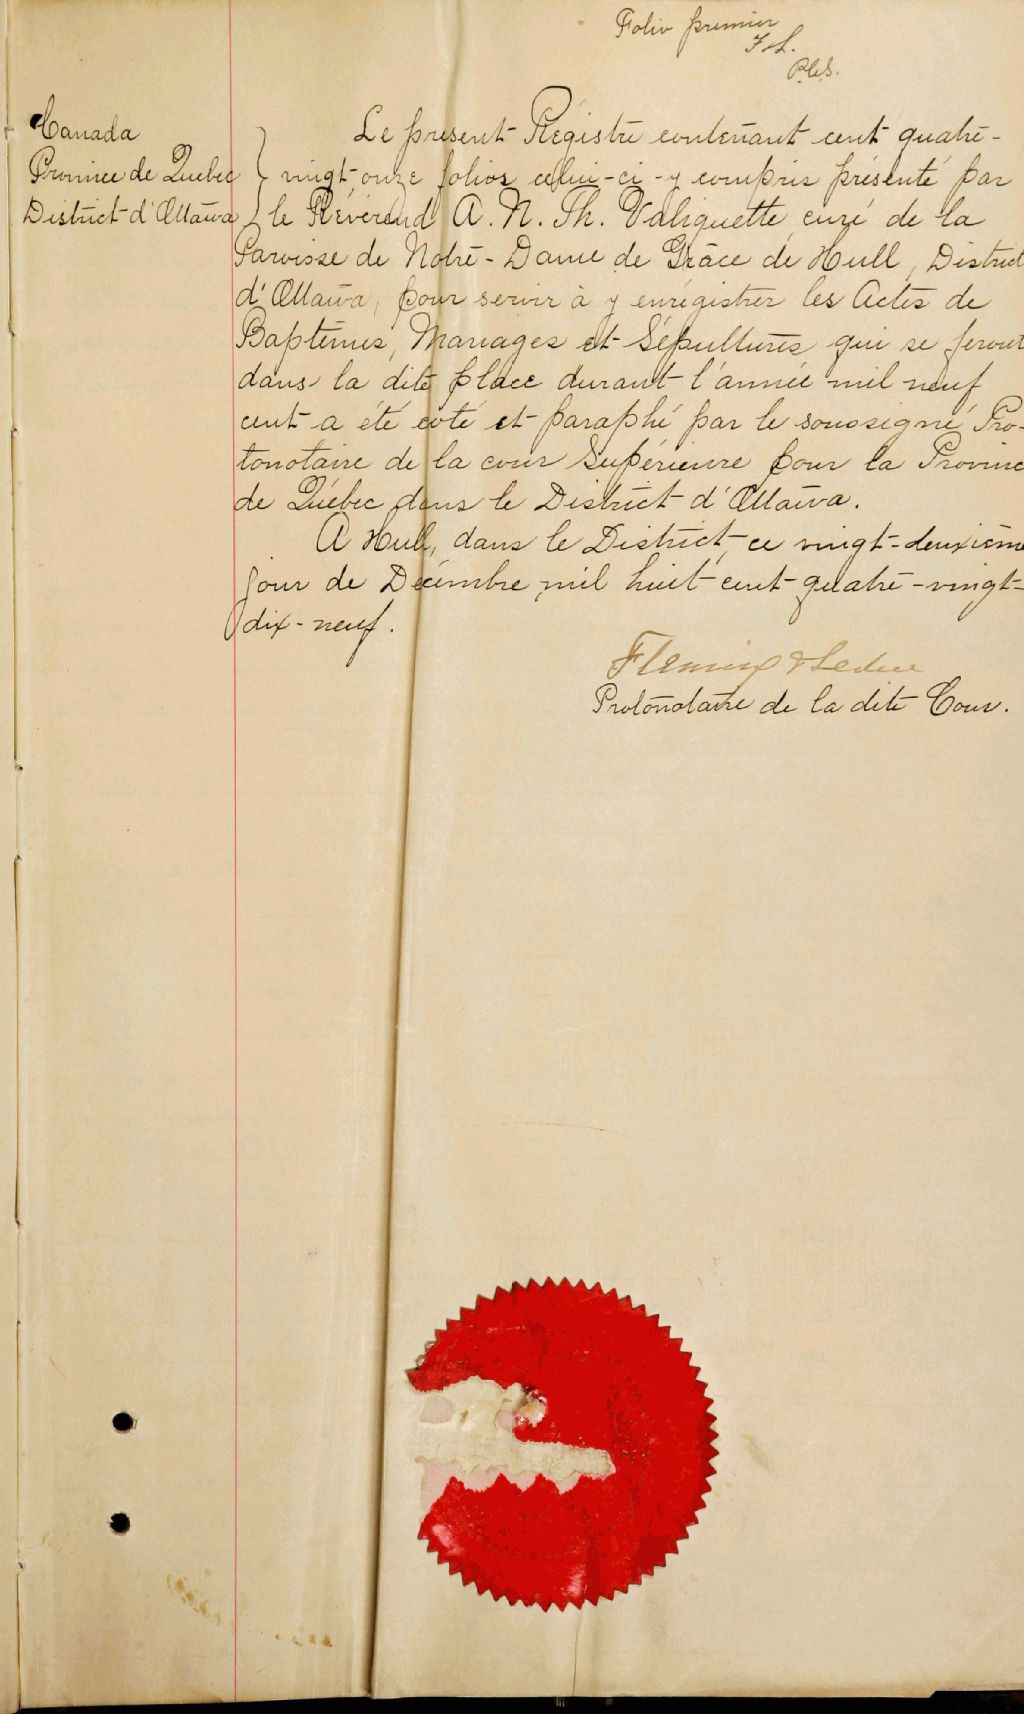 Folio premier
F & L.
P.C.S.
Canada
Province de Quebec
District d'Ottawa
Le présent Régistre contenant cent quatre-
vingt-onze folios celui-ci-y compris présenté par
le Révérend A. N. Th. Valiquette, curé de la
Paroisse de Notre-Dame de Grâce de Hull, District
d'Ottawa, pour servir à y enrégistrer les Actes de
Baptêmes, Mariages et Sépultures qui se feront
dans la dite place durant l'année mil neuf
cent a été coté et paraphé par le soussigné, Pro-
tonotaire de la cour Supérieure pour la Provinc
de Québec dans le District d'Ottawa.
A Hull, dans le District, ce vingt-deuxième
jour de Décembre mil huit cent quatre-vingt-
dix-neuf.
Fleming & Leduc
Protonotaire de la dite Cour.